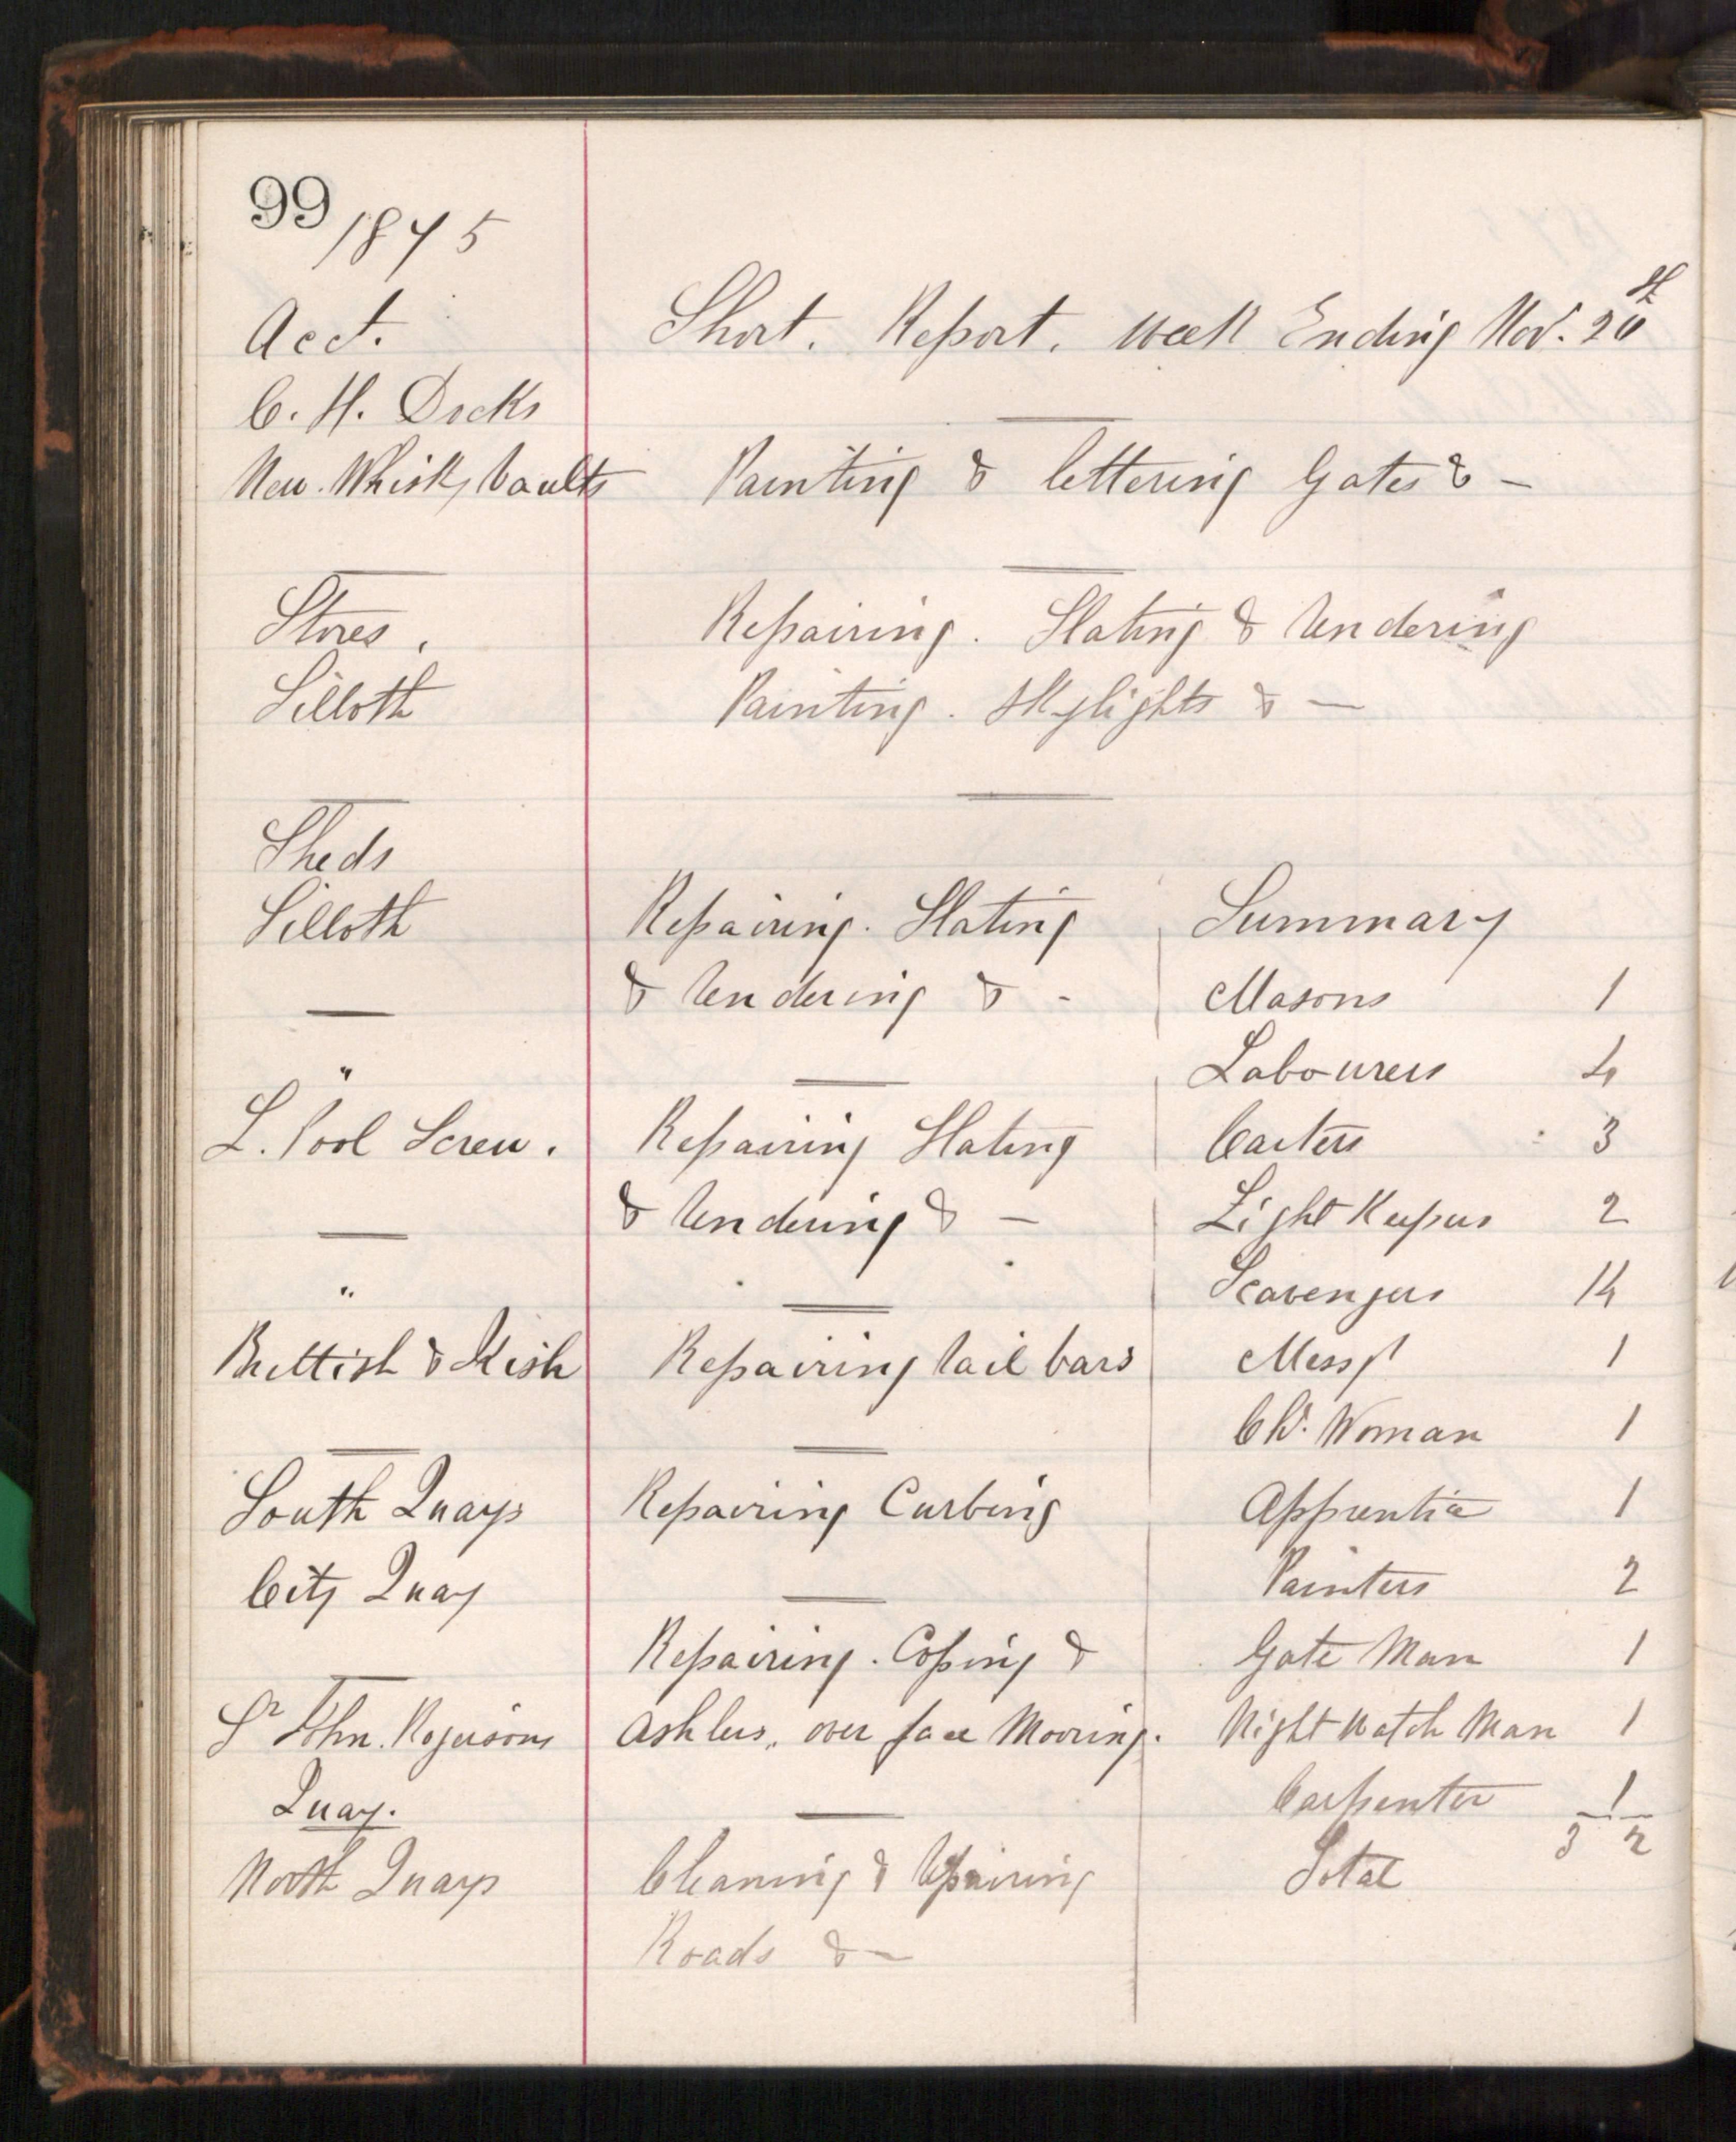 99 1875
Acct. Short. Report. Week Ending Nov. 20th
C. H. Docks
New. Whisky Vaults Painting & lettering Gates & —
Stores. Repairing. Slating & rendering
Silloth Painting. Skylights & —
Sheds
Silloth Repairing. Slating Summary
& rendering & - Masons 1
" Labourers 4
L. Pool Screw. Repairing Slating Carters 3
& rendering & — Light Keepers 2
" Scavengers 14
Brittish & Irish Repairing rail bars Messgr 1
Ch. Woman 1
South Quays Repairing Curbing Apprentice 1
City Quay Painters 2
Repairing. Coping & Gate Man 1
Sr John. Rogersons Ashlers, over face Mooring. Night Watch Man 1
Quay. Carpenter 1
North Quays Cleaning & repairing Total 32
Roads & —